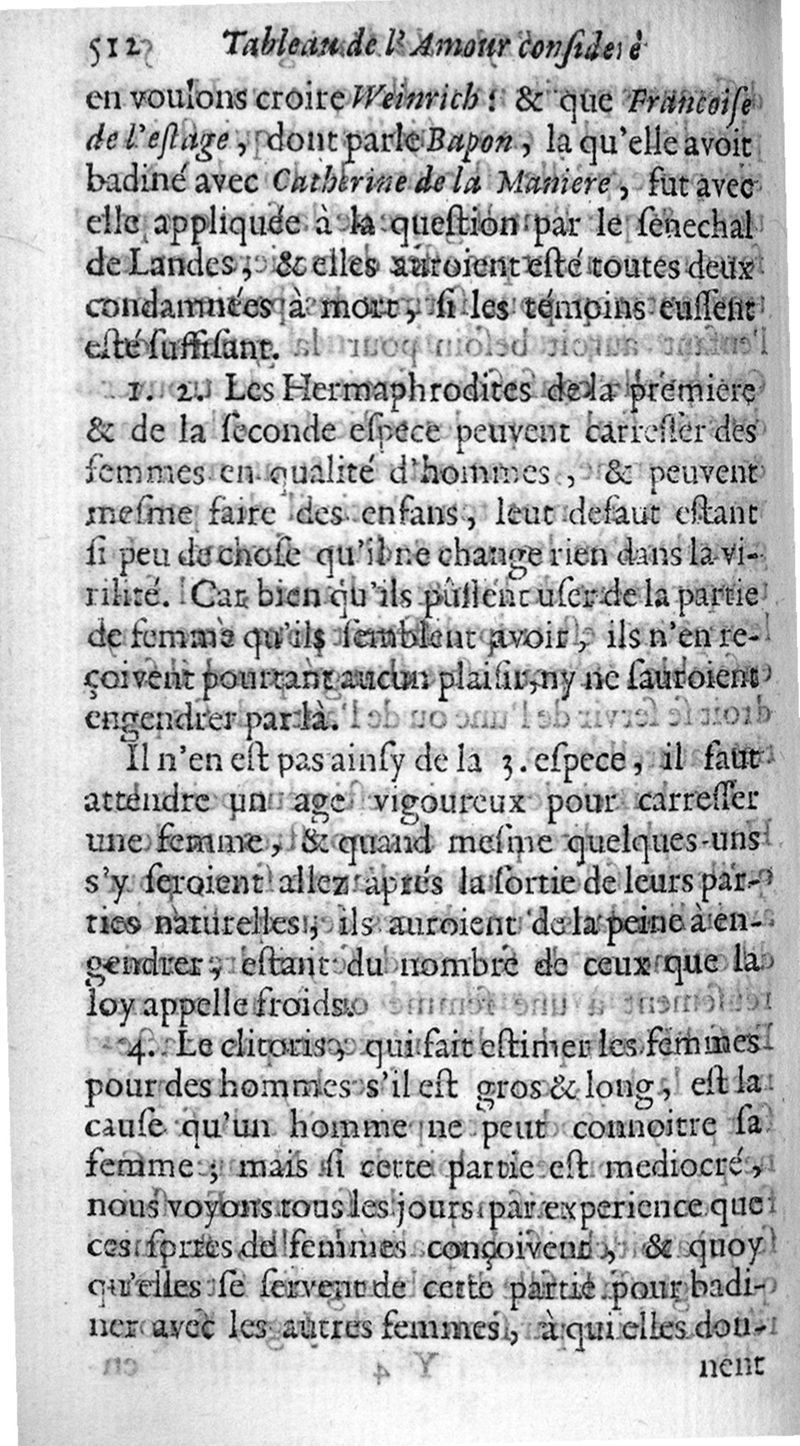 512 Tableau de l'Amour consideré
en voulons croire Weinrich : & que Francoise
de l'estage, dont parle Bapon, la qu'elle avoit
badiné avec Catherine de la Maniere, fut avec
elle appliquée à la question par le senechal
de Landes; & elles auroient esté toutes deux
condamnées à mort, si les témoins eussent
esté suffisant.
1. 2. Les Hermaphrodites de la premiere
& de la seconde espece peuvent carresser des
femmes en qualité d'hommes, & peuvent
mesme faire des enfans, leur defaut estant
si peu de chose qu'il ne change rien dans la vi-
rilité. Car bien qu'ils pûssent user de la partie
de femme qu'ils semblent avoir, ils n'en re-
çoivent pourtant aucun plaisir, ny ne sauroient
engendrer par là.
Il n'en est pas ainsy de la 3. espece, il faut
attendre un age vigoureux pour carresser
une femme, & quand mesme quelques-uns
s'y seroient allez aprés la sortie de leurs par-
ties naturelles, ils auroient de la peine à en-
gendrer, estant du nombre de ceux que la
loy appelle froids.
4. Le clitoris, qui fait estimer les femmes
pour des hommes s'il est gros & long, est la
cause qu'un homme ne peut connoitre sa
femme ; mais si cette partie est mediocre,
nous voyons tous les jours par experience que
ces sortes de femmes conçoivent, & quoy
qu'elles se servent de cette partie pour badi-
ner avec les autres femmes, à qui elles don-
Y 4 nent